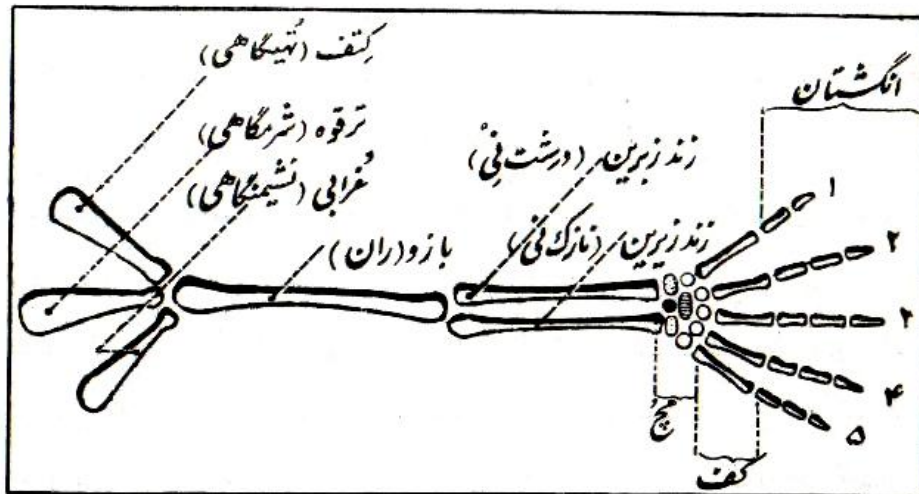 کتف (تهیگاهی)
ترقوه (شرمگاهی)
غرابی (نشیمنگاهی)
بازو (ران)
زند زبرین (درشت نی)
زند زیرین (نازک نی)
انگشتان
۱
۲
۳
۴
۵
مچ
کف